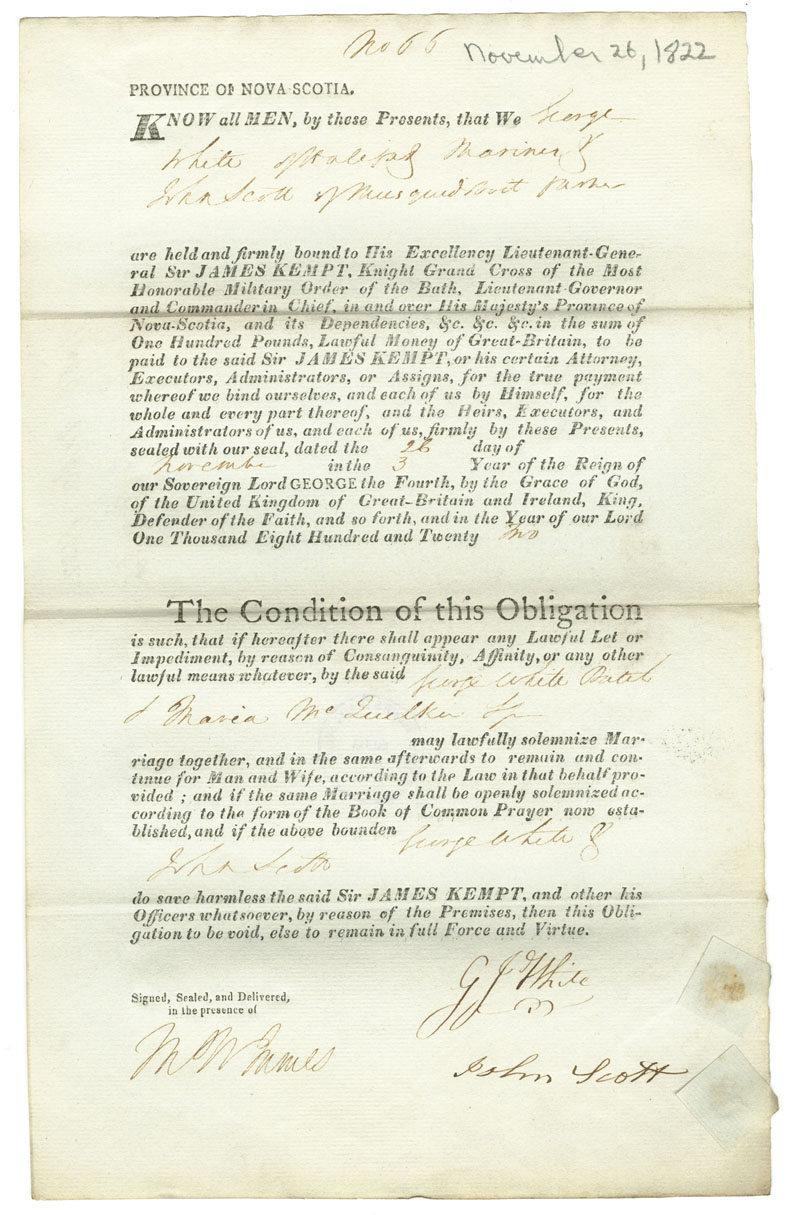 No 66
November 26, 1822
PROVINCE OF NOVA SCOTIA.
KNOW all MEN, by these Presents, that We George
White of Halifax Mariner &
John Scott of Musquodoboit
are held and firmly bound to His Excellency Lieutenant-Gene-
ral Sir JAMES KEMPT, Knight Grand Cross of the Most
Honorable Military Order of the Bath, Lieutenant-Governor
and Commander in Chief, in and over His Majesty's Province of
Nova-Scotia, and its Dependencies, &c. &c. &c. in the sum of
One Hundred Pounds, Lawful Money of Great-Britain, to be
paid to the said Sir JAMES KEMPT, or his certain Attorney,
Executors, Administrators, or Assigns, for the true payment
whereof we bind ourselves, and each of us by Himself, for the
whole and every part thereof, and the Heirs, Executors, and
Administrators of us, and each of us, firmly by these Presents,
sealed with our seal, dated the 26 day of
November in the 3 Year of the Reign of
our Sovereign Lord GEORGE the Fourth, by the Grace of God,
of the United Kingdom of Great-Britain and Ireland, King,
Defender of the Faith, and so forth, and in the Year of our Lord
One Thousand Eight Hundred and Twenty two
The Condition of this Obligation
is such, that if hereafter there shall appear any Lawful Let or
Impediment, by reason of Consanguinity, Affinity, or any other
lawful means whatever, by the said George White Batch
& Maria Sp
may lawfully solemnize Mar-
riage together, and in the same afterwards to remain and con-
tinue for Man and Wife, according to the Law in that behalf pro-
vided; and if the same Marriage shall be openly solemnized ac-
cording to the form of the Book of Common Prayer now esta-
blished, and if the above bounden George White &
John Scott
do save harmless the said Sir JAMES KEMPT, and other his
Officers whatsoever, by reason of the Premises, then this Obli-
gation to be void, else to remain in full Force and Virtue.
G J White
Signed, Sealed, and Delivered,
in the presence of
John Scott